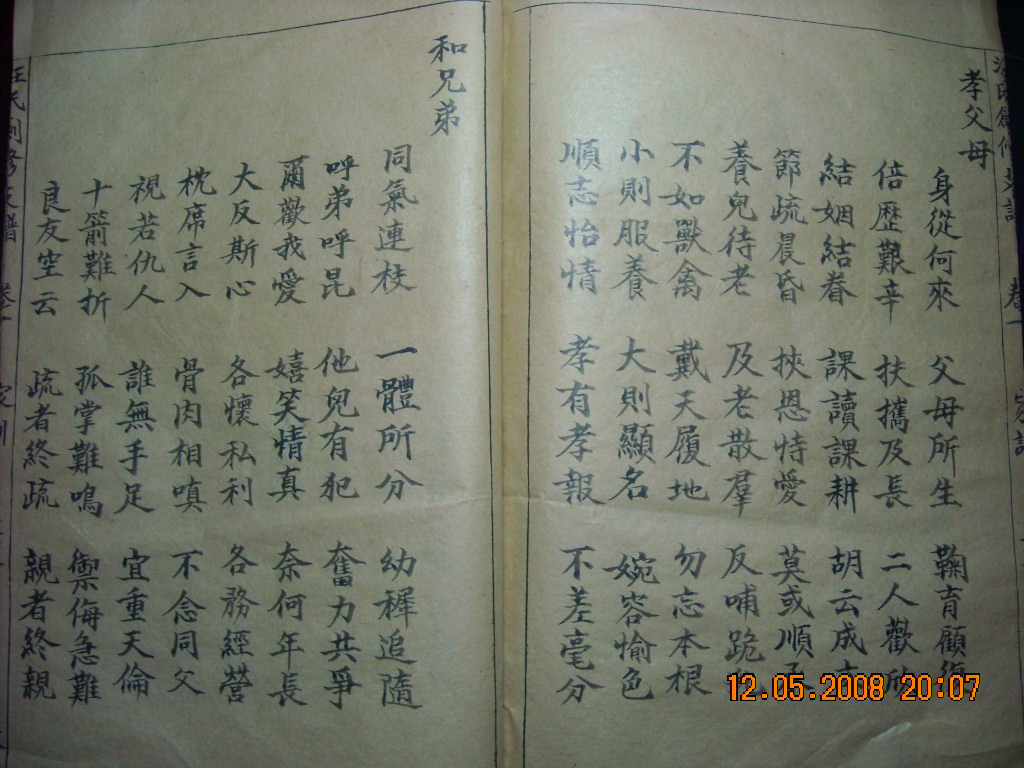 孝父母
身從何來 父母所生 鞠育顧復
倍歷艱辛 扶攜及長 二人歡欣
結姻結眷 課讀課耕 胡云成立
節疏晨昏 挾恩恃愛 莫或順承
養兒待老 及老散羣 反哺跪
不如獸禽 戴天履地 勿忘本根
小則服養 大則顯名 婉容愉色
順志怡情 孝有孝報 不差毫分
和兄弟
同氣連枝 一體所分 幼穉追隨
呼弟呼昆 他兒有犯 奮力共爭
爾歡我愛 嬉笑情真 奈何年長
大反斯心 各懷私利 各務經營
枕席言入 骨肉相嗔 不念同父
視若仇人 誰無手足 宜重天倫
十箭難折 孤掌難鳴 禦侮急難
良友空云 疏者終疏 親者終親
汪氏創修支譜 卷一 家訓
12.05.2008 20:07